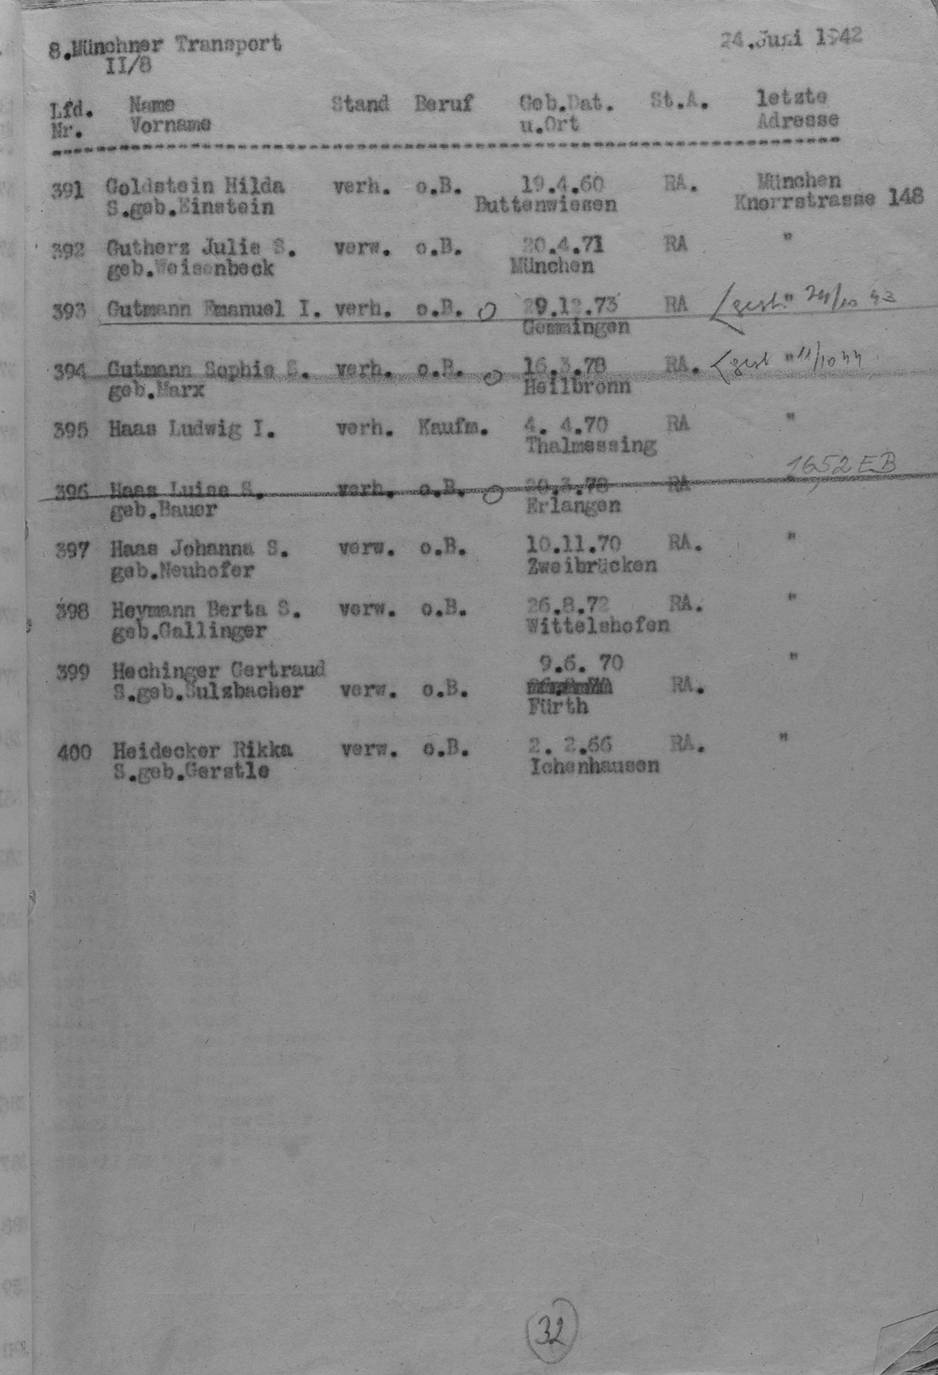 8.Münchner Transport 24.Juni 1942
II/8
Lfd. Name Stand Beruf Geb.Dat. St.A. letzte
Nr. Vorname u.Ort Adresse
391 Goldstein Hilda verh. o.B. 19.4.60 RA. München
S.geb.Einstein Buttenwiesen Knorrstrasse 148
392 Gutherz Julie S. verw. o.B. 20.4.71 RA "
geb.Weisenbeck München
393 Gutmann Emanuel I. verh. o.B. 29.12.73 RA gest. "
Gemmingen
394 Gutmann Sophie S. verh. o.B. 16.3.78 RA. gest " 11/10 44
geb.Marx Heilbronn
395 Haas Ludwig I. verh. Kaufm. 4. 4.70 RA "
Thalmessing
1652 EB
396 Haas Luise S. verh. o.B. 20.3.78 RA
geb.Bauer Erlangen
397 Haas Johanna S. verw. o.B. 10.11.70 RA. "
geb.Neuhofer Zweibrücken
398 Heymann Berta S. verw. o.B. 26.8.72 RA. "
geb.Gallinger Wittelshofen
399 Hechinger Gertraud 9.6. 70 "
S.geb.Sulzbacher verw. o.B. RA.
Fürth
400 Heidecker Rikka verw. o.B. 2. 2.66 RA. "
S.geb.Gerstle Ichenhausen
32